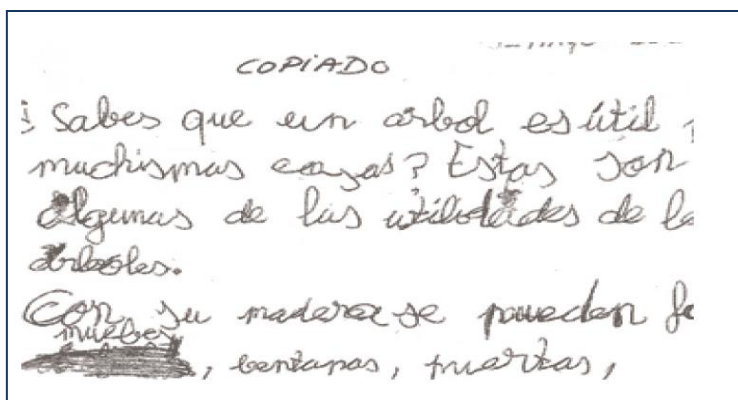 COPIADO
¿Sabes que un arbol es útil
muchismas cosas? Estas son
algunas de las utilidades de lo
arboles.
Con su madera se pueden fa
muebes
, bentanas, puertas,